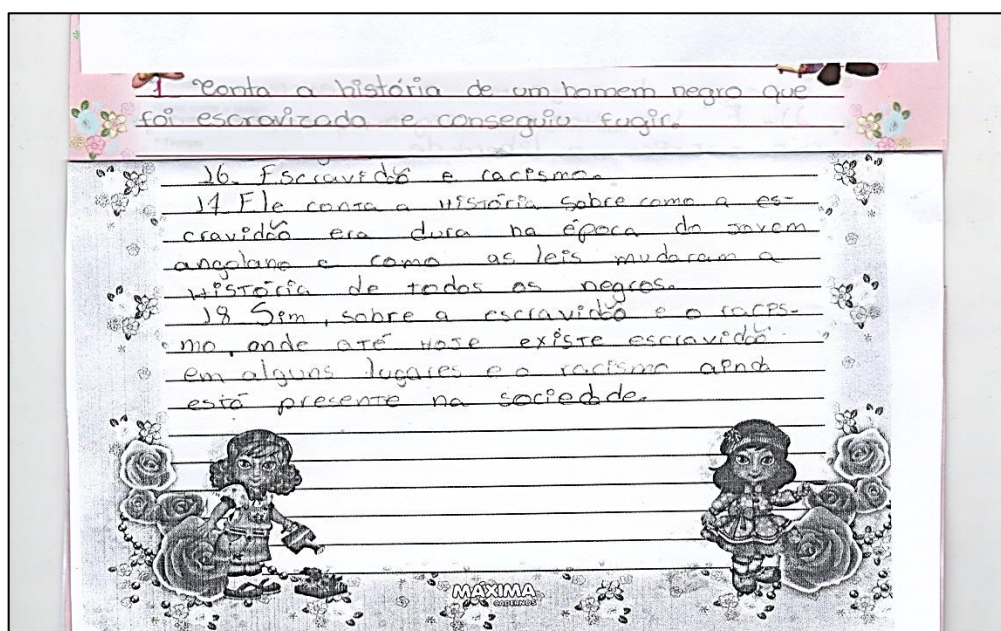 1 Conta a história de um homem negro que
foi escravizado e conseguiu fugir.
16. Escravidão e racismo.
17 Ele conta a História sobre como a es-
cravidão era dura na época do jovem
angolano e como as leis mudaram a
História de todos os negros.
18 Sim, sobre a escravidão e o racis-
mo, onde até hoje existe escravidão
em alguns lugares e o racismo ainda
está presente na sociedade.
MÁXIMA
CADERNOS